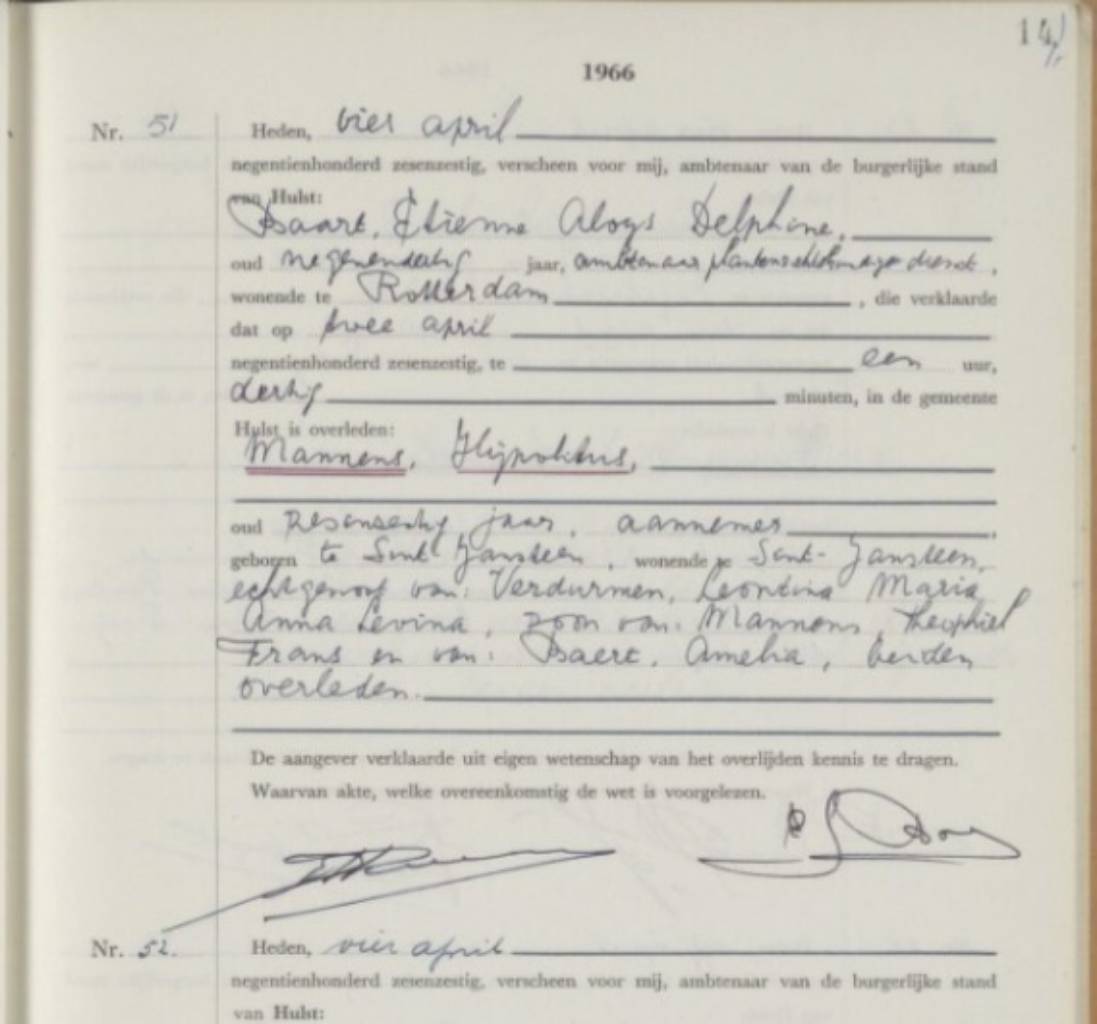 14
1966
Nr. 51 Heden, vier april
negentienhonderd zesenzestig, verscheen voor mij, ambtenaar van de burgerlijke stand
van Hulst:
Baart, Etienne Aloys Delphine,
oud negenendertig jaar, ambtenaar dienst,
wonende te Rotterdam, die verklaarde
dat op twee april
negentienhonderd zesenzestig, te een uur,
dertig minuten, in de gemeente
Hulst is overleden:
Mannens, Hijpolitus,
oud zesenzestig jaar, aannemer,
geboren te Sint Jansteen, wonende te Sint-Jansteen,
echtgenoot van: Verdurmen, Leontina Maria
Anna Levina, zoon van: Mannens, Theophiel
Frans en van: Baert, Amelia, beiden
overleden.
De aangever verklaarde uit eigen wetenschap van het overlijden kennis te dragen.
Waarvan akte, welke overeenkomstig de wet is voorgelezen.
Nr. 52. Heden, vier april
negentienhonderd zesenzestig, verscheen voor mij, ambtenaar van de burgerlijke stand
van Hulst: